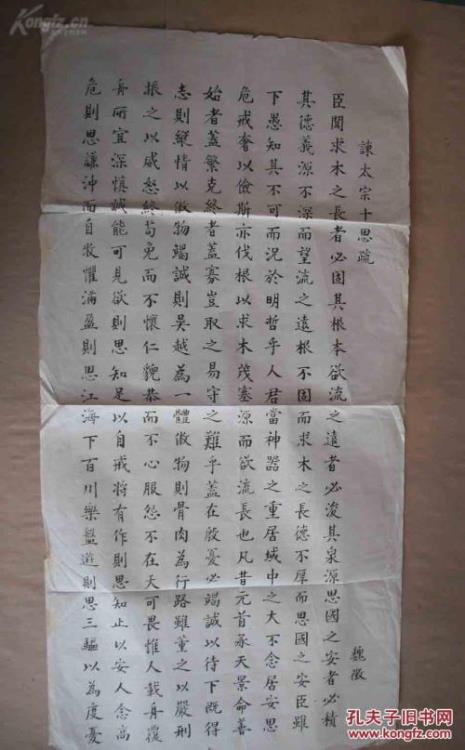 Kongfz.cn
諫太宗十思疏
魏徵
臣聞求木之長者必固其根本欲流之遠者必浚其泉源思國之安者必積
其德義源不深而望流之遠根不固而求木之長德不厚而思國之安臣雖
下愚知其不可而況於明哲乎人君當神器之重居域中之大不念居安思
危戒奢以儉斯亦伐根以求木茂塞源而欲流長也凡昔元首承天景命善
始者蓋繁克終者蓋寡豈取之易守之難乎蓋在殷憂必竭誠以待下既得
志則縱情以傲物竭誠則吳越為一體傲物則骨肉為行路雖董之以嚴刑
振之以威怒終苟免而不懷仁貌恭而不心服怨不在大可畏惟人載舟覆
舟所宜深慎誠能可見欲則思知足以自戒將有作則思知止以安人念高
危則思謙沖而自牧懼滿盈則思江海下百川樂盤遊則思三驅以為度憂
孔夫子旧书网
kongfz.com